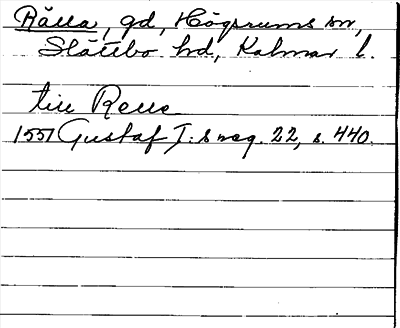 Rälla, gd, Högsrums sn,
Slättbo hd, Kalmar l.
till Relle
1557 Gustaf I:s reg. 22, s. 440.